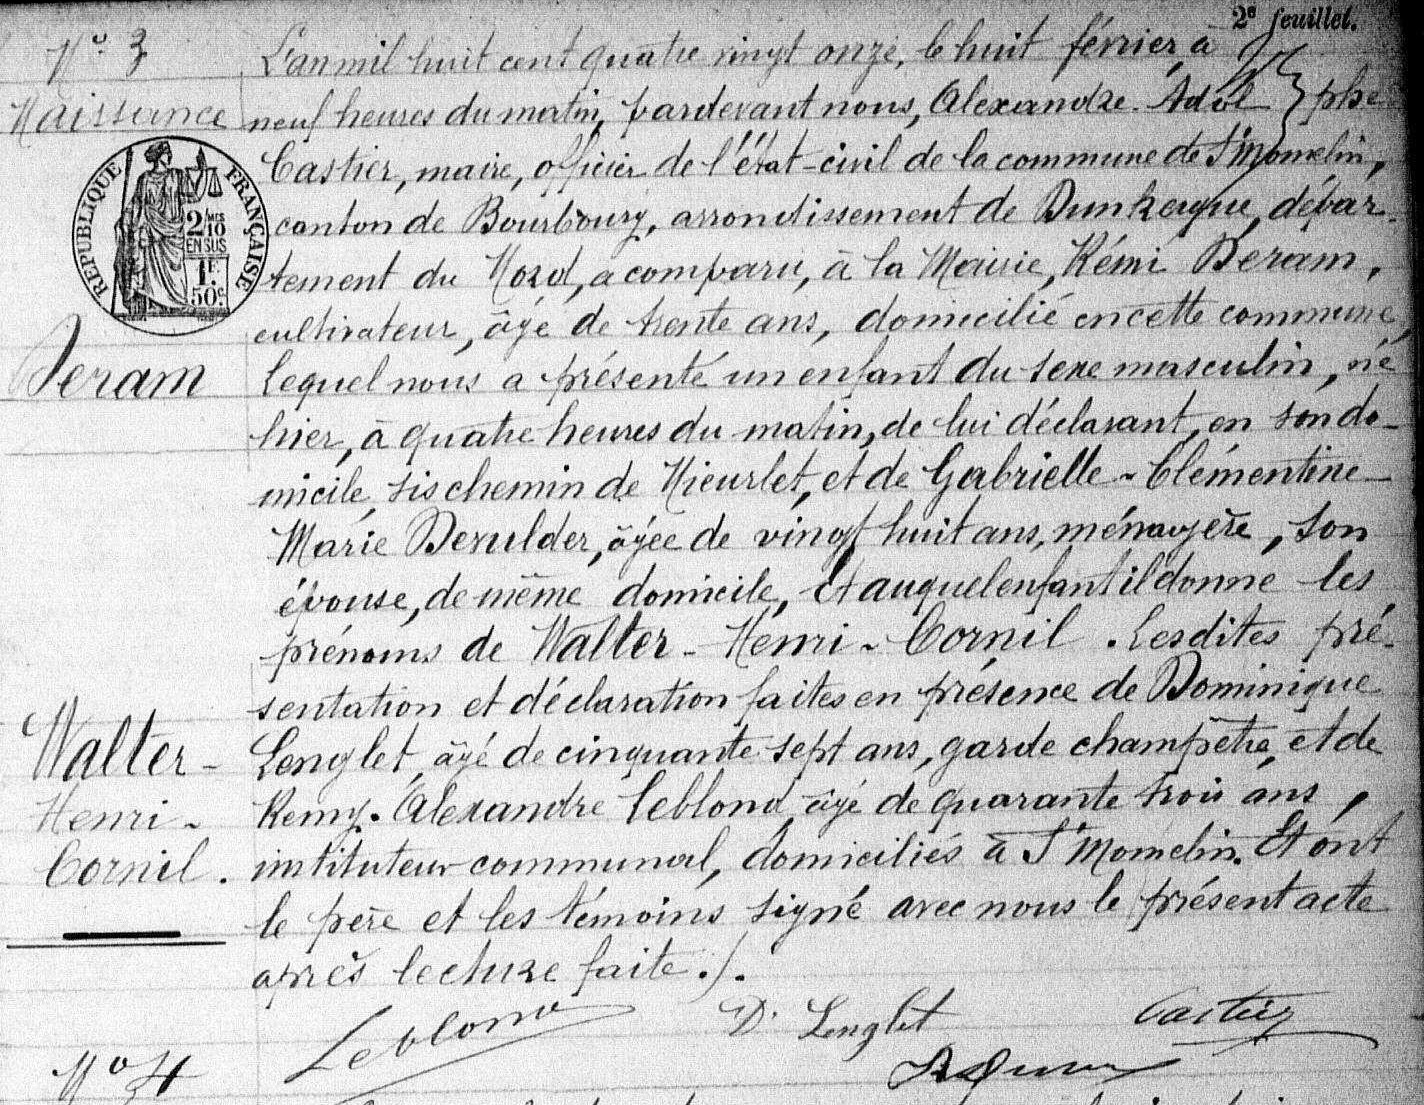 2e feuillet.
No 3
Naissance
RÉPUBLIQUE FRANÇAISE
2/10 MES
EN SUS
1F.
50c
Deram
Walter-
Henri-
Cornil.
L'an mil huit cent quatre vingt onze, le huit février, à
neuf heures du matin, pardevant nous, Alexandre-Adolphe
Castier, maire, officier de l'état-civil de la commune de St Momelin,
canton de Bourbourg, arrondissement de Dunkerque, dépar-
tement du Nord, a comparu, à la Mairie, Rémi Deram,
cultivateur, âgé de trente ans, domicilié en cette commune,
lequel nous a présenté un enfant du sexe masculin, né
hier, à quatre heures du matin, de lui déclarant, en son do-
micile, sis chemin de Nieurlet, et de Gabrielle-Clémentine-
Marie Devulder, âgée de vingt huit ans, ménagère, son
épouse, de même domicile, Et auquel enfant il donne les
prénoms de Walter-Henri-Cornil. Lesdites pré-
sentation et déclaration faites en présence de Dominique
Lenglet, âgé de cinquante sept ans, garde champêtre, et de
Remy-Alexandre Leblond, âgé de quarante trois ans,
instituteur communal, domiciliés à St Momelin. Et ont
le père et les témoins signé avec nous le présent acte
après lecture faite./.
Leblond D. Lenglet Castier
No 4